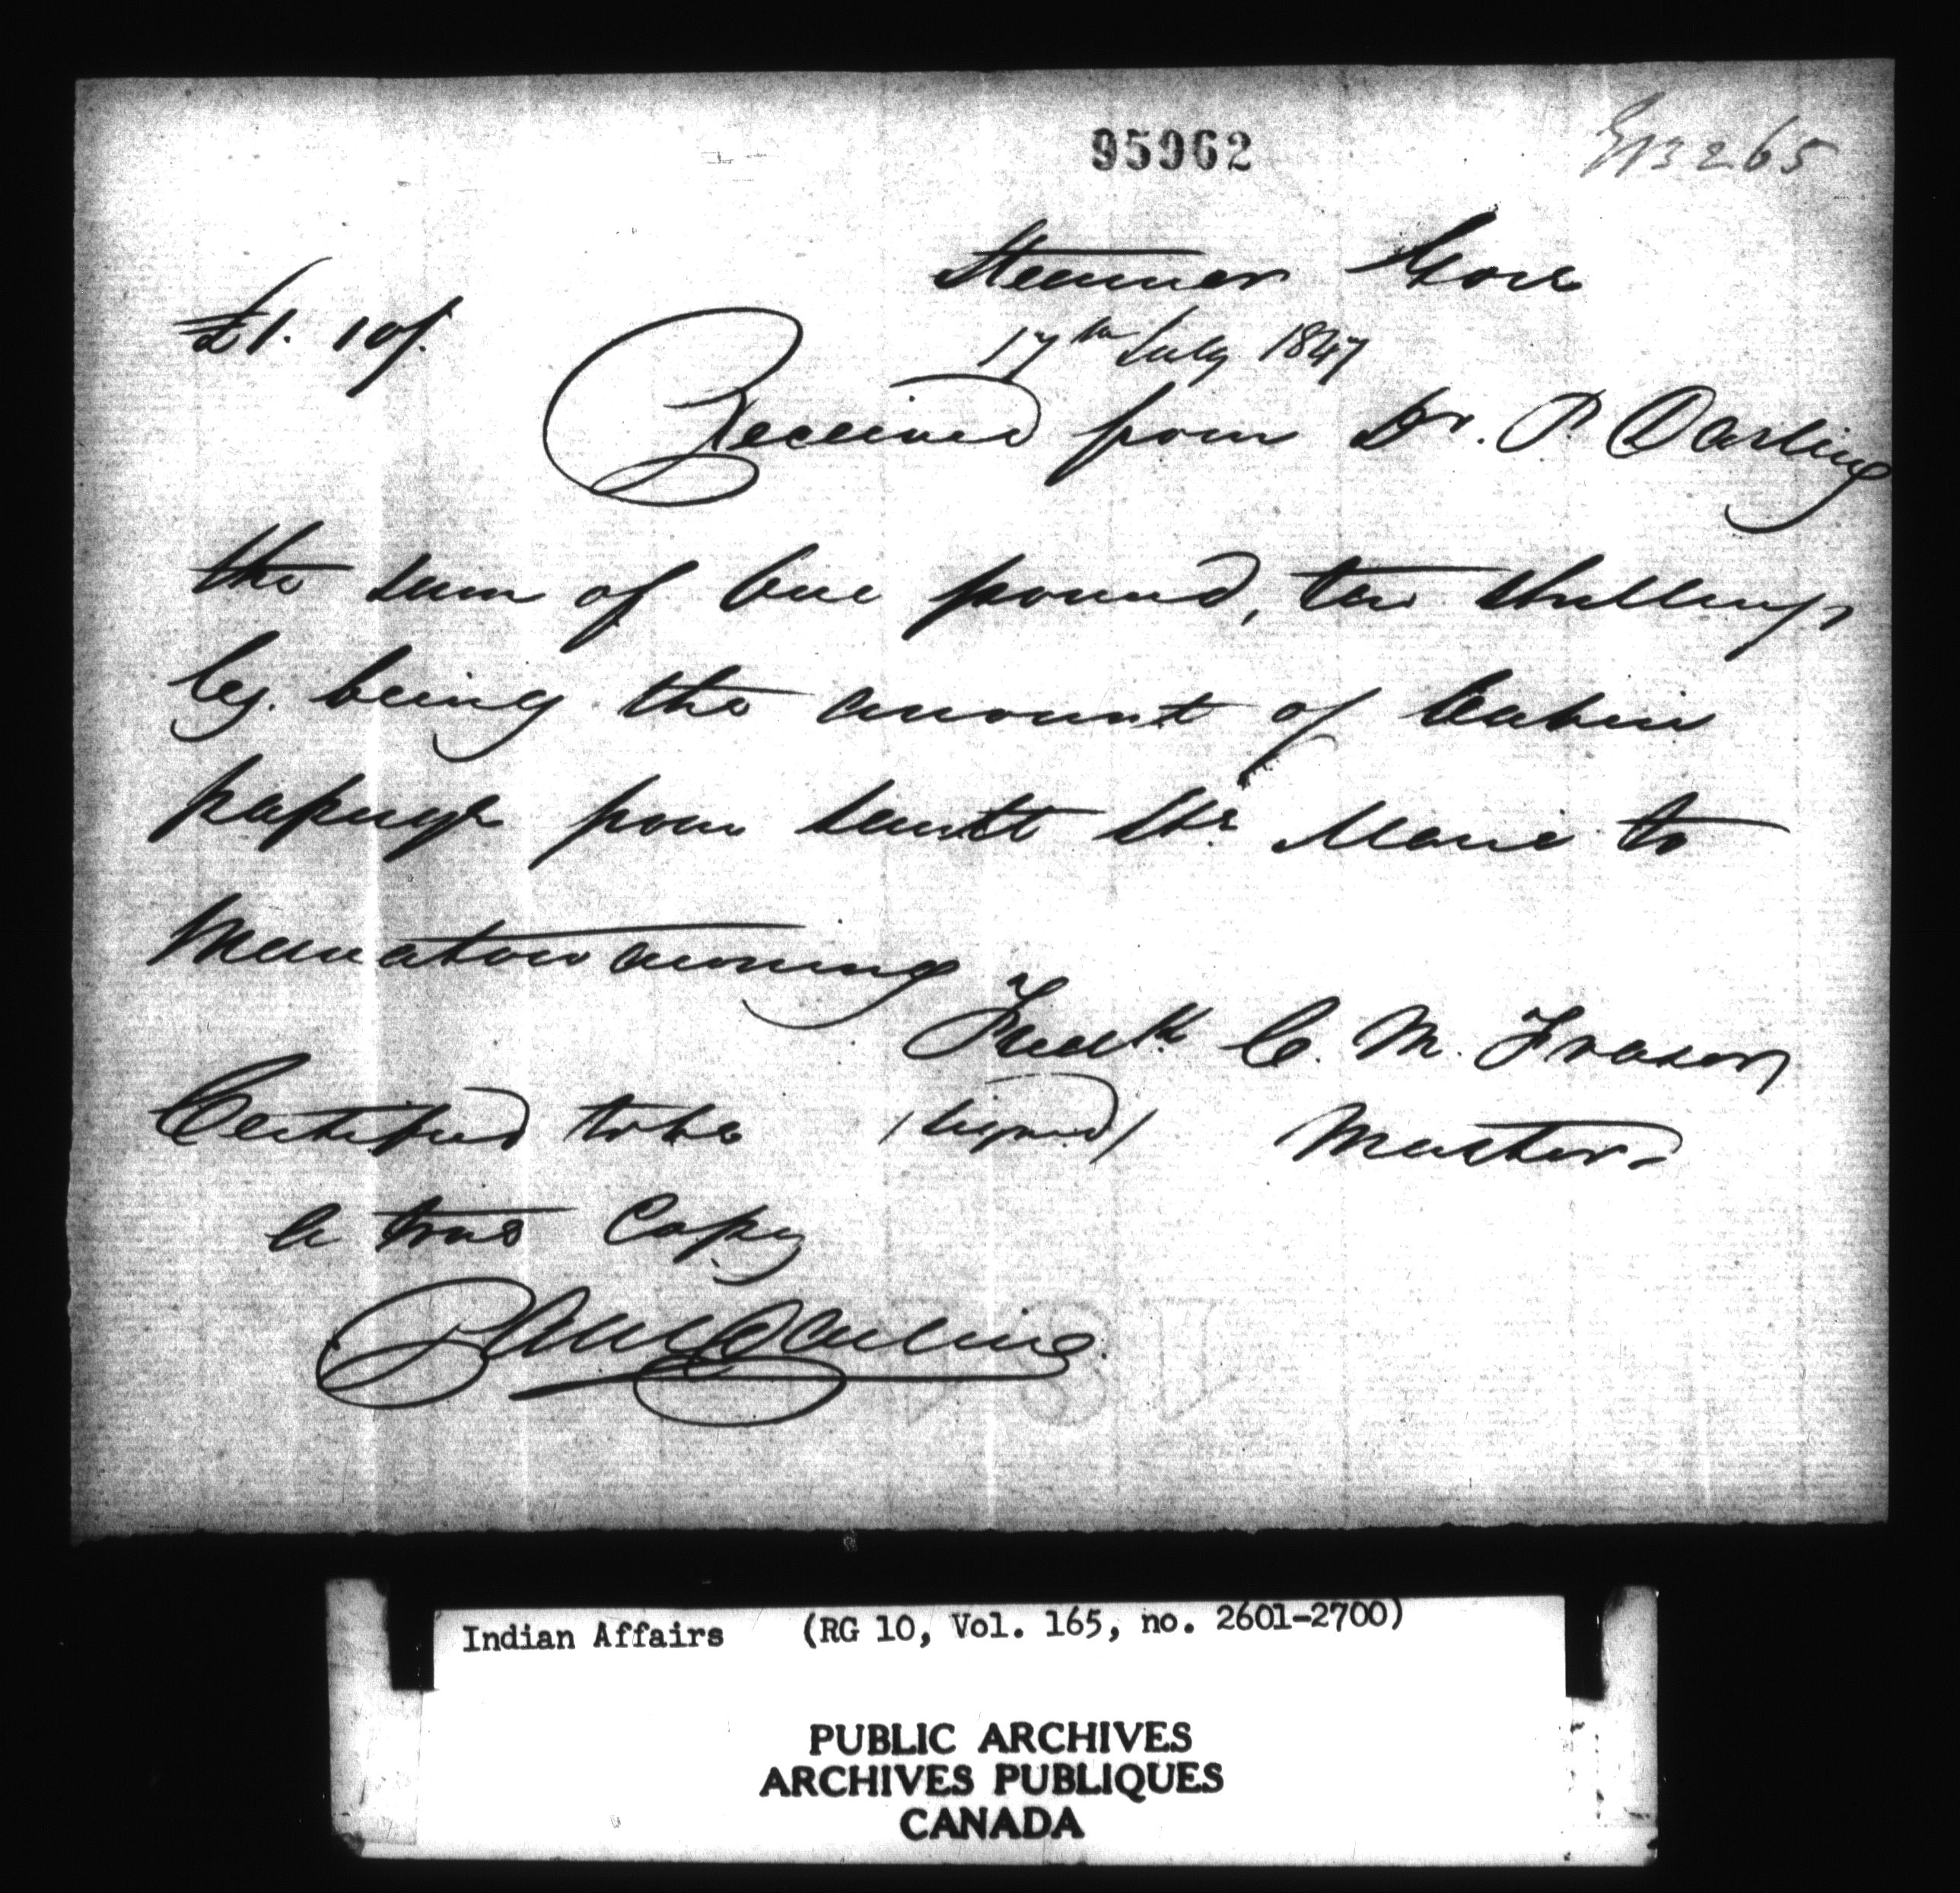 95962
2265
Steamer Gore
£1. 10/.
17th July 1847
Received from Dr. P. Darling
the sum of One pound, ten Shillings
Cy. being the amount of Cabin
passage from Sault Ste Marie to
Manatowawning
Fredk C. M. Fraser
Certified to be (signed) Master
a true Copy
Darling
Indian Affairs (RG 10, Vol. 165, no. 2601-2700)
PUBLIC ARCHIVES
ARCHIVES PUBLIQUES
CANADA